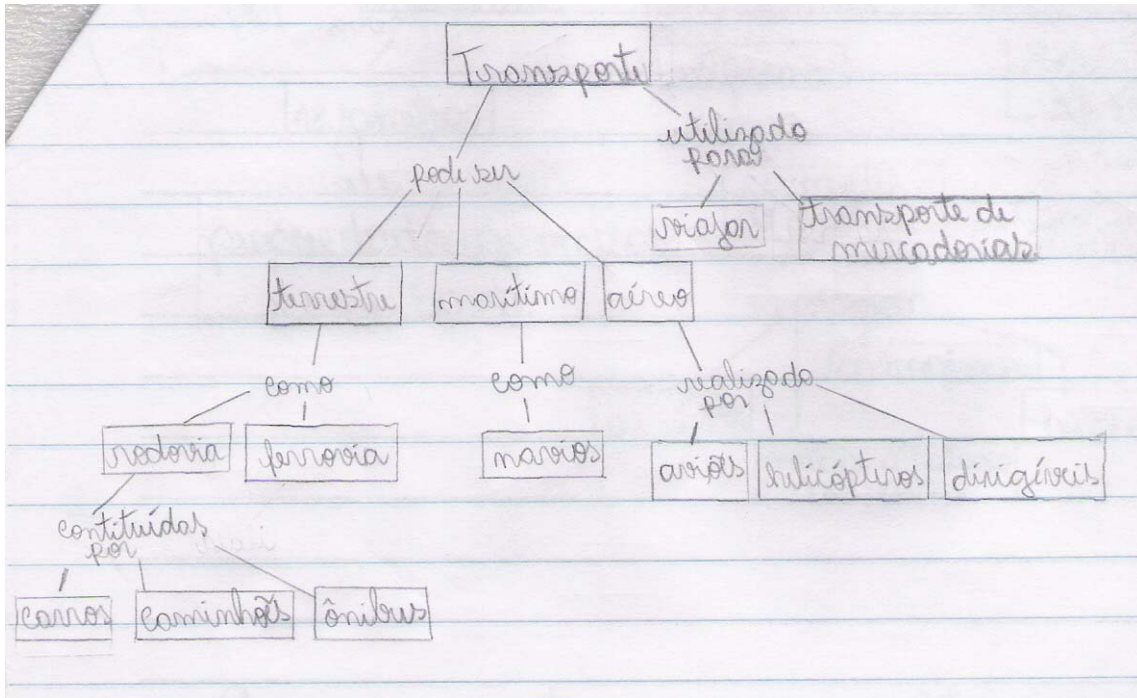 Transporte
utilizado
para
pode ser
viajar
transporte de
mercadorias
terrestre marítimo aéreo
como como realizado
por
rodovia ferrovia navios aviões helicópteros dirigíveis
contituídas
por
carros caminhões ônibus